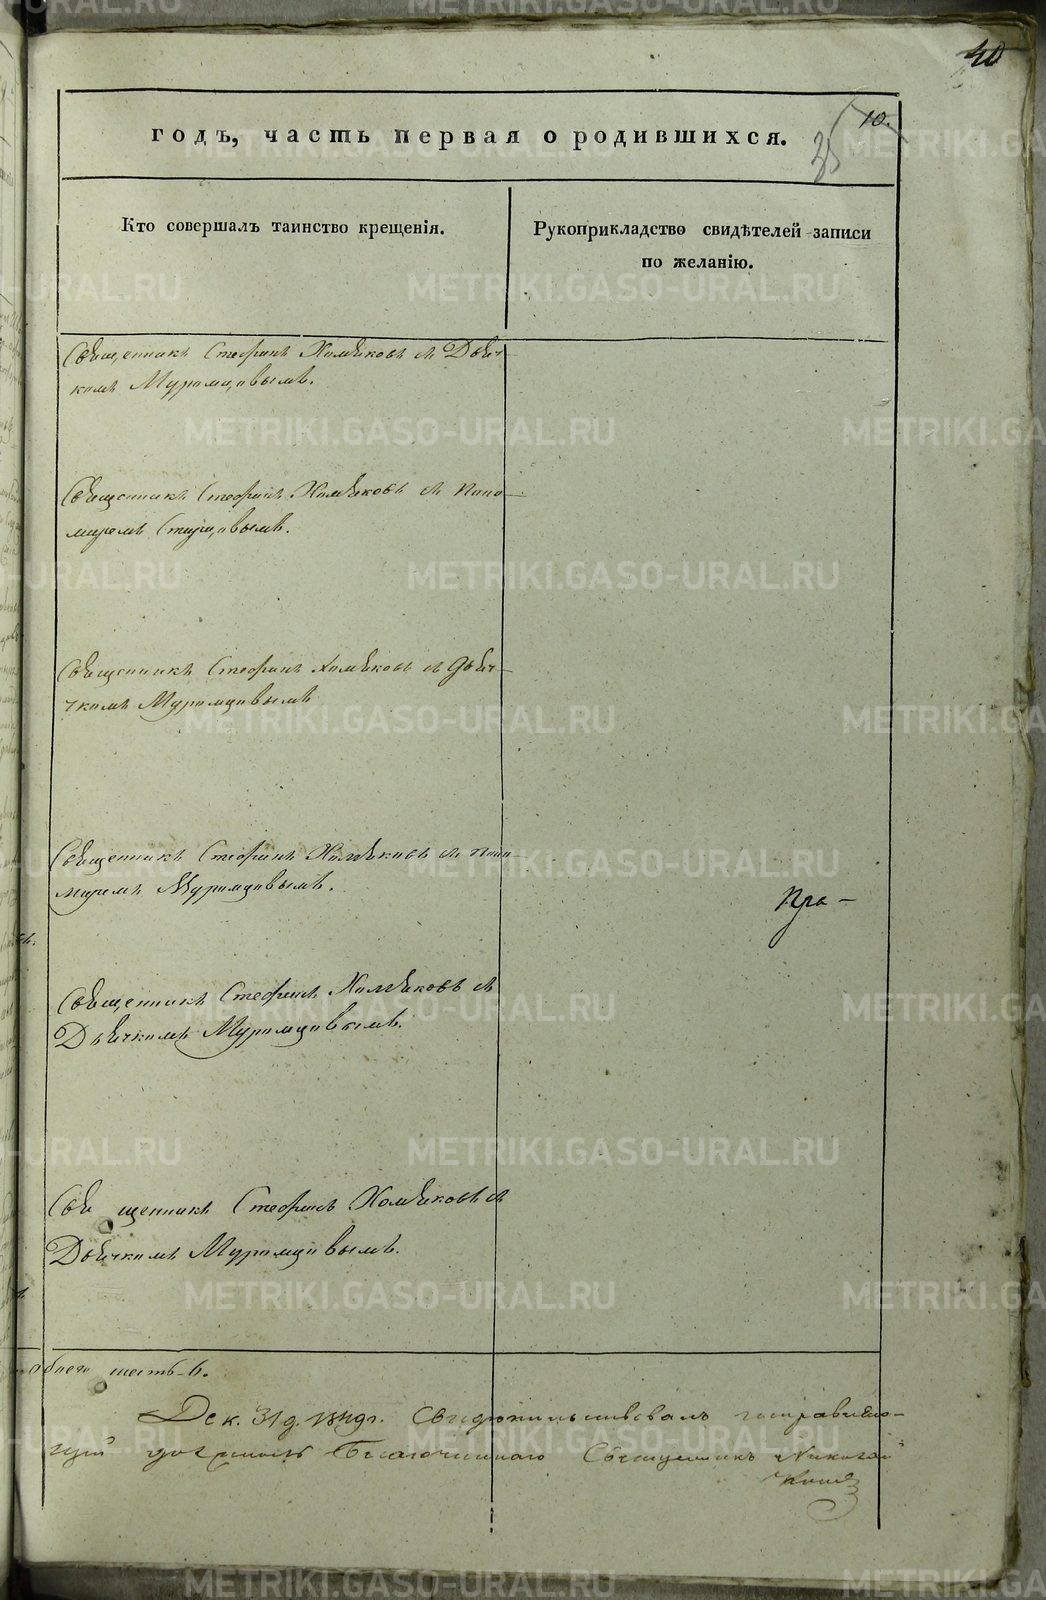 40
годъ, часть первая о родившихся.
10.
Кто совершалъ таинство крещенія.
Рукоприкладство свидѣтелей записи
по желанію.
Священникъ Стефанъ Хомяковъ съ Дьяч-
комъ Муромцовымъ.
Священникъ Стефанъ Хомяковъ съ Поно-
маремъ Старцовымъ.
Священникъ Стефанъ Хомяковъ съ Дьяч-
комъ Муромцовымъ
Священникъ Стефанъ Хомяковъ съ Поно-
маремъ Муромцовымъ.
Пра-
Священникъ Стефанъ Хомяковъ съ
Дьячкомъ Муромцовымъ.
Священникъ Стефанъ Хомяковъ съ
Дьячкомъ Муромцовымъ.
обоего шесть-6.
Дек. 31 д. Свидѣтельствовалъ исправляю-
щій должность Благочиннаго Священникъ Николай
METRIKI.GASO-URAL.RU